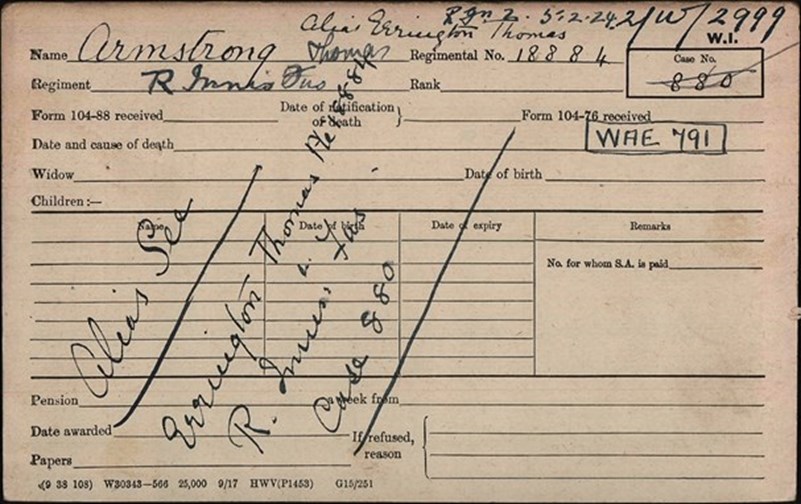 Alias Errington Thomas
Rgn 2. 5-2-24
2/W/2999
W.I.
Name Armstrong Thomas Regimental No. 18884
Case No.
880
Regiment R Innis Fus Rank
Form 104-88 received Date of notification of death } Form 104-76 received
WAE 791
Date and cause of death
Widow Date of birth
Children:—
Name. Date of birth Date of expiry Remarks
No. for whom S.A. is paid
Alias See
Errington Thomas
R. Innis. Fus
Case 880
Pension a week from
Date awarded
If refused, reason {
Papers
(9 38 108) W30343—566 25,000 9/17 HWV(P1453) G15/251